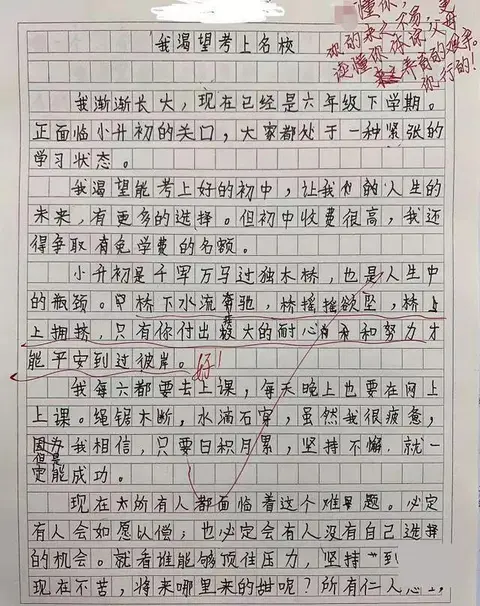 懂你,
你的来之不易,更
还懂你 你父母
养育的艰辛。
你行的!
我渴望考上名校
我渐渐长大,现在已经是六年级下学期。
正面临小升初的关口,大家都处于一种紧张的
学习状态。
我渴望能考上好的初中,让我们的人生的
未来,有更多的选择。但初中收费很高,我还
得争取有免学费的名额。
小升初是千军万马过独木桥,也是人生中
的瓶颈。桥下水流奔驰,桥摇摇欲坠,桥上
上拥挤,只有你付出极大的耐心和努力才
能平安到过彼岸。好!
我每六都要去上课,每天晚上也要在网上
上课。绳锯木断,水滴石穿,虽然我很疲惫,
但是因为我相信,只要日积月累,坚持不懈,就一
定能成功。
现在太所有人都面临着这个难题。必定
有人会如愿以偿;也必定会有人没有自己选择
的机会。就看谁能够顶住压力,坚持到
现在不苦,将来哪里来的甜呢?所有仁人志